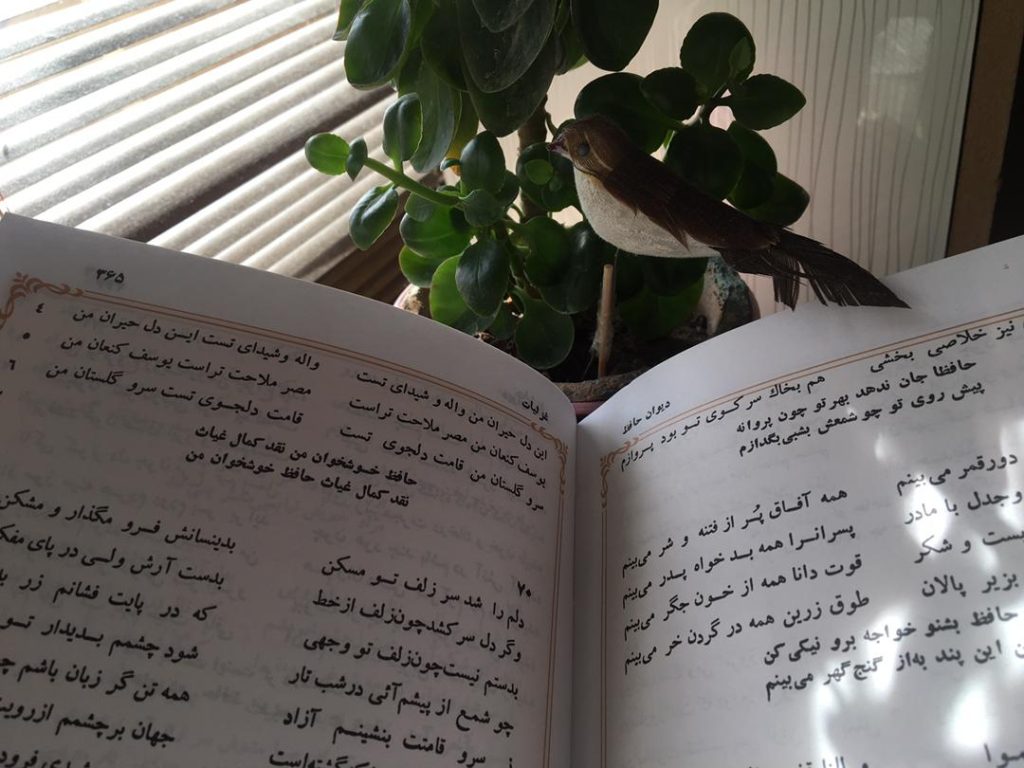 دیوان حافظ
نیز خلاصی بخشی هم بخاك سر کوی تو بود پروازم
حافظا جان ندهد بهر تو چون پروانه
پیش روی تو چو شمعش بشبی بگدازم
دور قمر می بینم همه آفاق پُر از فتنه و شر می‌بینم
وجدل با مادر پسرانرا همه بدخواه پدر می‌بینم
ست و شکر قوت دانا همه از خون جگر می‌بینم
بزیر پالان طوق زرین همه در گردن خر می‌بینم
حافظ بشنو خواجه برو نیکی کن
این پند به‌از گنج گهر می‌بینم
غزلیات ۳۶۵
این دل حیران من واله و شیدای تست واله وشیدای تست ایـن دل حیران من ٤
یوسف کنعان من مصر ملاحت تراست مصر ملاحت تراست یوسف کنعان من ٥
سرو گلستان من قامت دلجوی تست قامت دلجـوی تست سرو گلستان من ٦
حافظ خـوشخوان من نقد کمال غیاث
نقد کمال غیاث حافظ خوشخوان من
۷۰
دلم را شد سر زلف تـو مسکن بدینسانش فـرو مگذار و مشکن
وگر دل سرکشدچون‌زلف ازخط بدست آرش ولـی در پای
بدستم نیست‌چون‌زلف تو وجهی که در پایت فشانم زر
چو شمع از پیشم‌آئی درشب تار شود چشمم بـدیدار تـو
سرو قامتت بنشینـم آزاد همه تن گر زبان باشم
جهان بر چشمم ازرویت